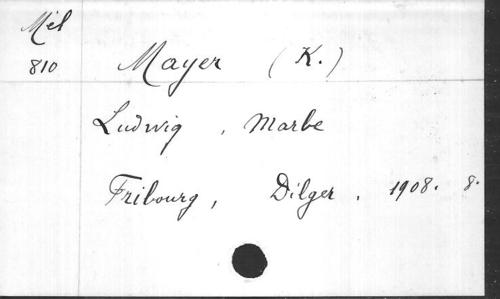 Mél
810
Mayer (K.)
Ludwig, Marbe
Fribourg, Dilger. 1908. 8.